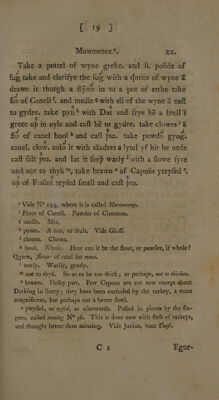 [ 19 ]
Mawmenee ʳ. XX.
Take a pottel of wyne greke. and ii. pounde of
sug take and clarifye the sug with a qntite of wyne &
drawe it thurgh a styno in to a pot of erthe take
flo of Canell ˢ. and medle ᵗ with sū of the wyne & cast
to gydre. take pyn ᵘ with Dat and frye hē a litell ī
grece oþ in oyle and cast hē to gydre. take clowes ˣ &
flo of canel hool ʸ and cast þto. take powdō gyng.
canel. clow. colō it with sāndres a lytel yf hit be nede
cast salt þto. and lat it seeþ warly ᶻ with a slowe fyre
and not to thyk ᵃᵃ, take brawn ᵇ of Caponis yteysed ᶜ.
oþ of Fesānt teysed small and cast þto.
ʳ Vide Nº 194, where it is called Mawmenny.
ˢ Flour of Canell. Powder of Cinamon.
ᵗ medle. Mix.
ᵘ pynes. A nut, or fruit. Vide Gloss.
ˣ clowes. Cloves.
ʸ hool. Whole. How can it be the flour, or powder, if whole?
Quære, flower of canel for mace.
ᶻ warly. Warily, gently.
ᵃᵃ not to thyk. So as to be too thick; or perhaps, not to thicken.
ᵇ brawn. Fleshy part. Few Capons are cut now except about
Darking in Surry; they have been excluded by the turkey, a more
magnificent, but perhaps not a better fowl.
ᶜ yteysed, or teysed, as afterwards. Pulled in pieces by the fin-
gers, called teezing Nº 36. This is done now with flesh of turkeys,
and thought better than mincing. Vide Junius, voce Tease.
C 2 Egur-